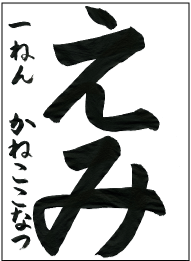 えみ
一ねん　かねここなつ